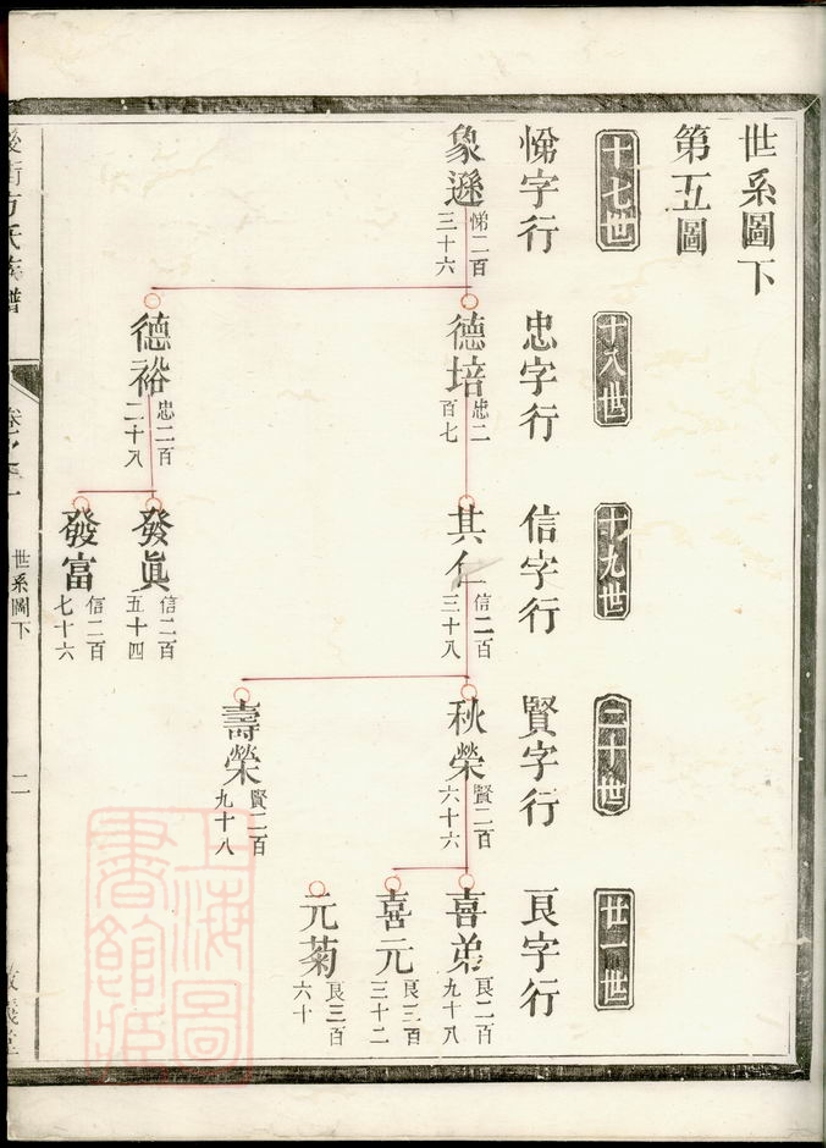 世系圖下
第五圖
十七世
十八世
十九世
二十世
廿一世
悌字行
忠字行
信字行
賢字行
良字行
象遜
悌二百
三十六
德培
忠二
百七
其仁
信二百
三十八
秋榮
賢二百
六十六
喜弟
良二百
九十八
喜元
良三百
三十二
元菊
良三百
六十
壽榮
賢二百
九十八
德裕
忠二百
二十八
發眞
信二百
五十四
發富
信二百
七十六
方氏族譜
世系圖下
二
上海圖
書館藏